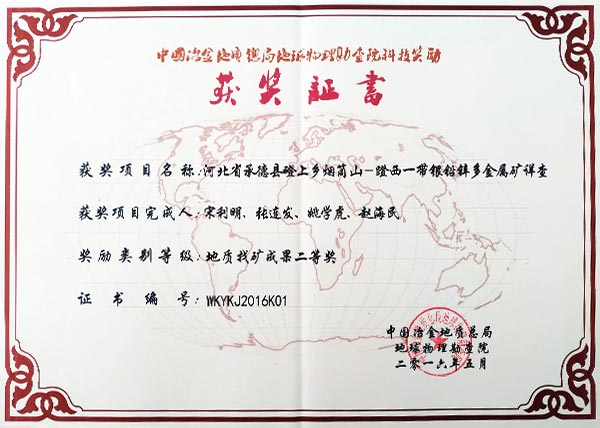 中国冶金地质总局地球物理勘查院科技奖励
获奖証書
获奖项目名称:河北省承德县磴上乡烟筒山-磴西一带银铅锌多金属矿详查
获奖项目完成人:宋利明、张连发、姚学虎、赵海民
奖励类别等级:地质找矿成果二等奖
证书编号:WKYKJ2016K01
中国冶金地质总局
地球物理勘查院
二零一六年五月